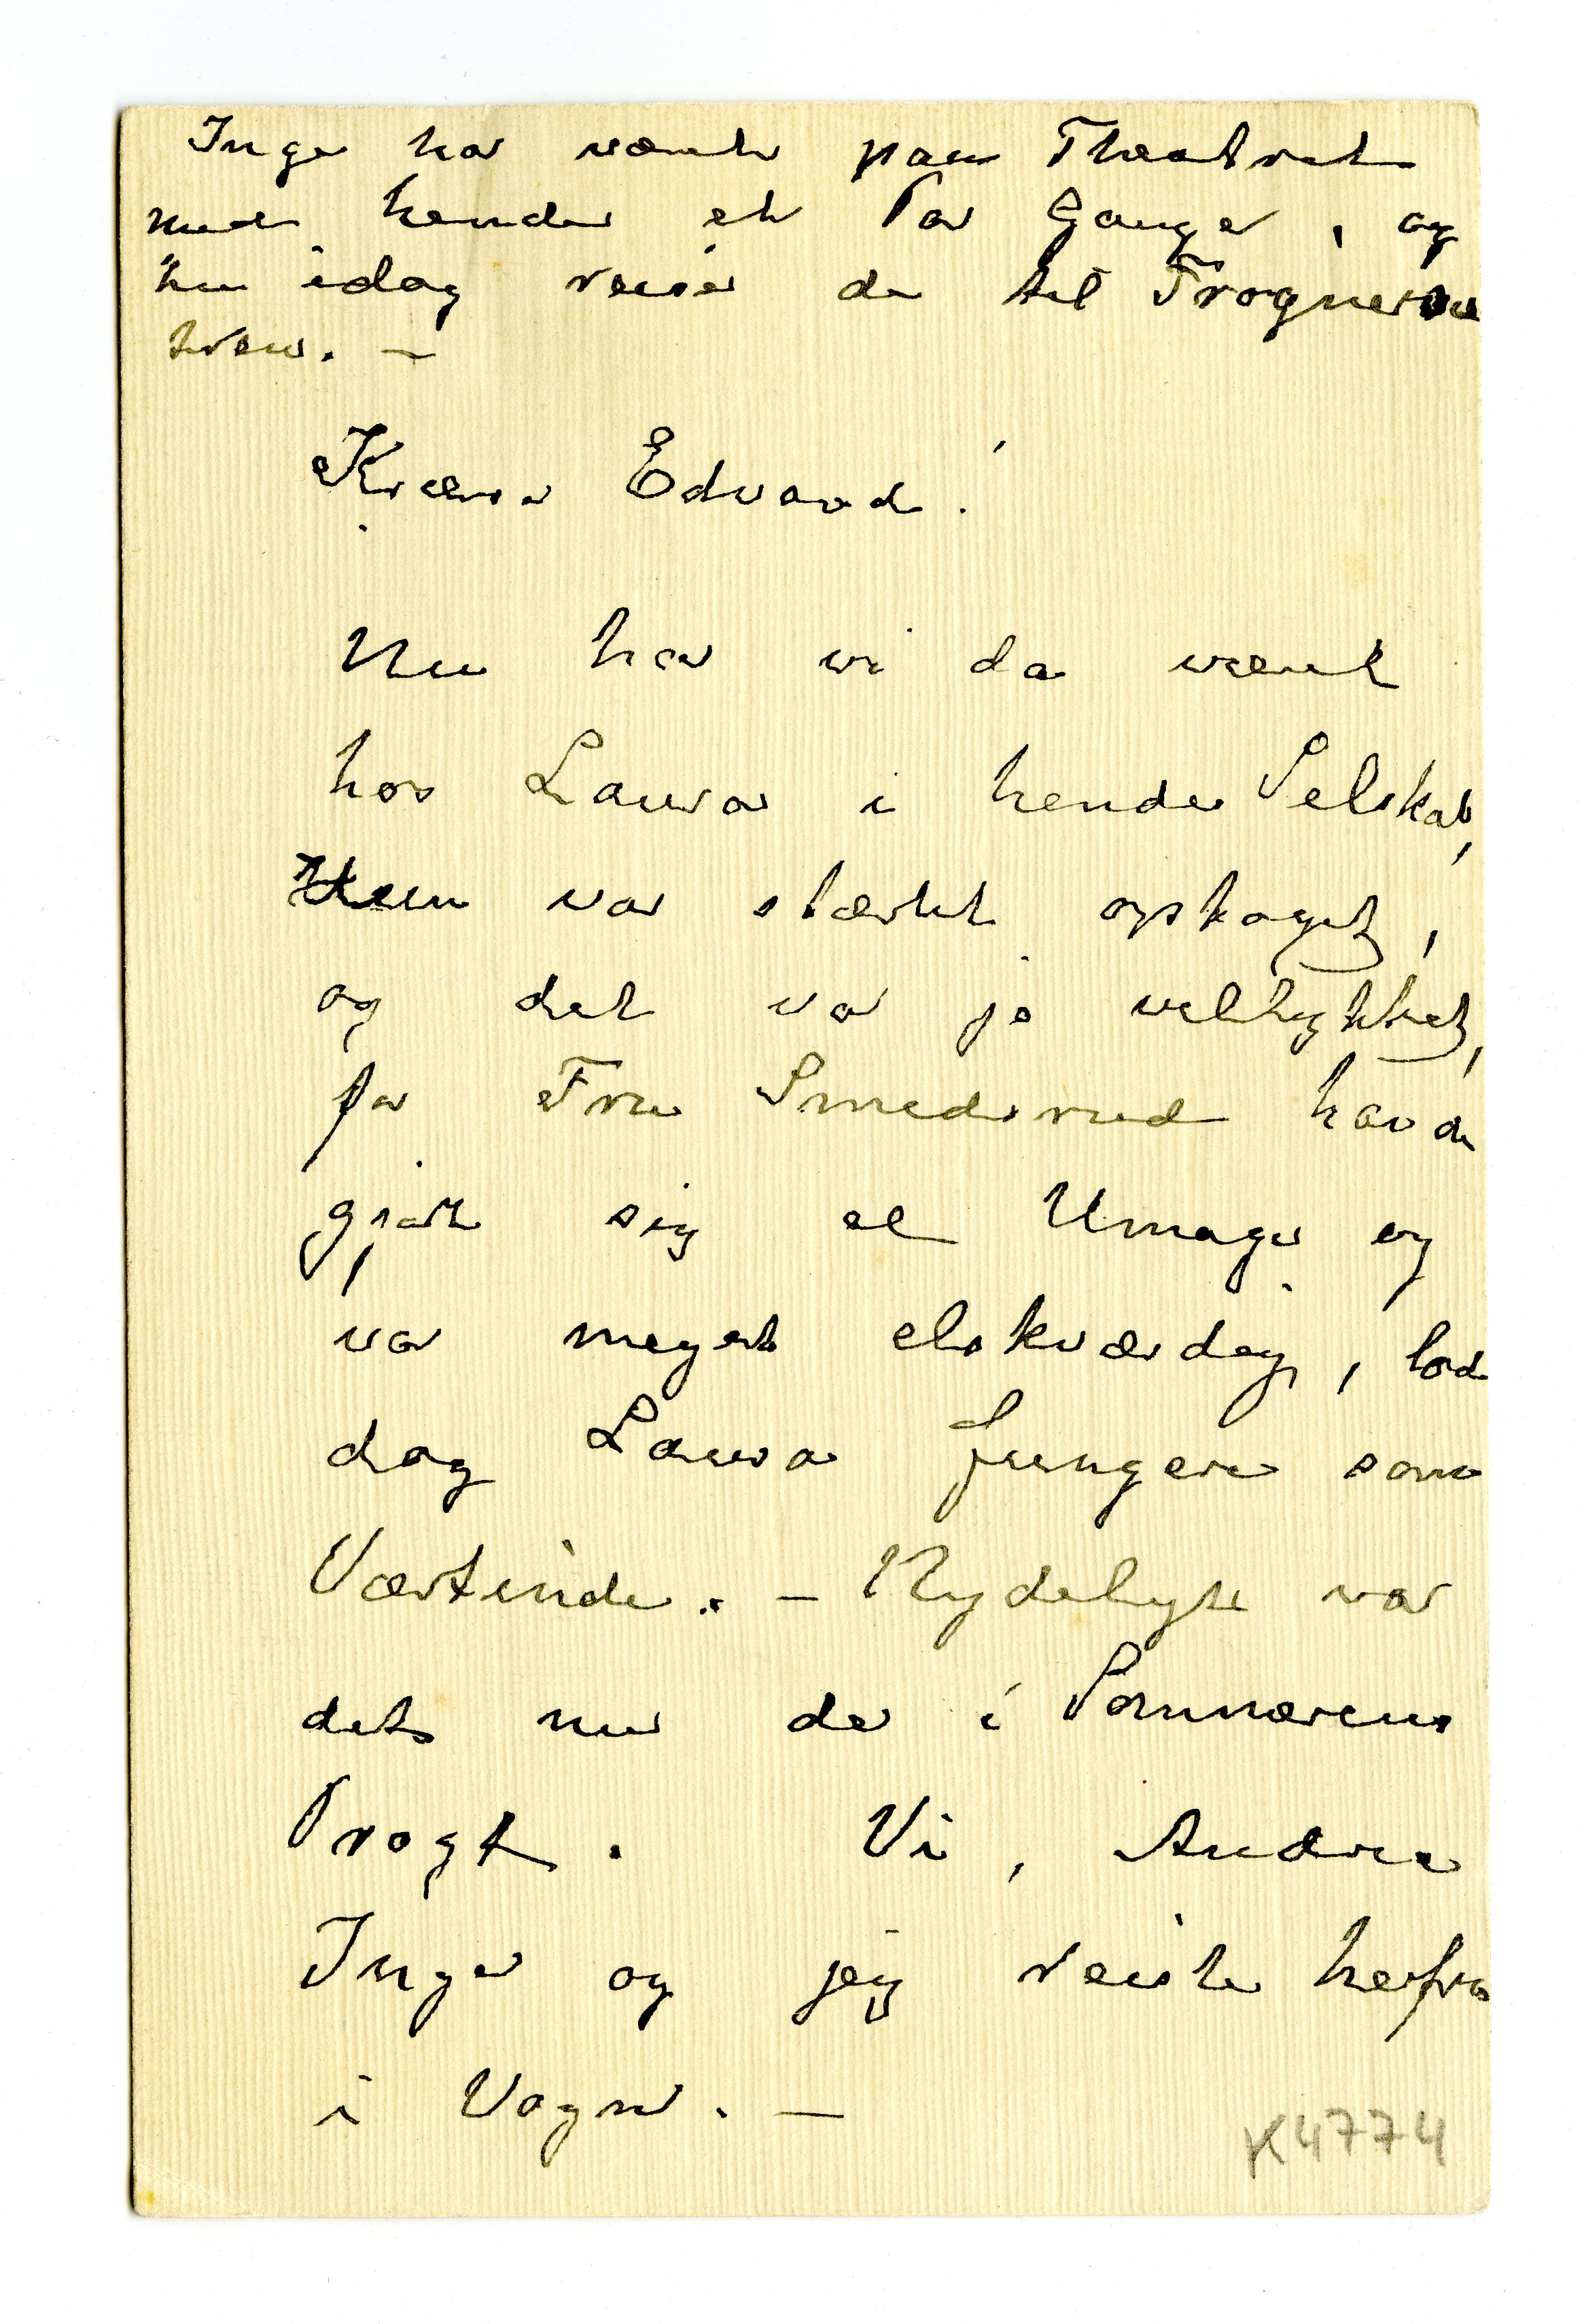 Inger har været paa Theatret
med hende et Par Gange, og
nu idag reiser de til Frognersæ
teren. –
Kjære Edvard!
Nu har vi da været
hos Laura i hendes Selskab,
Hun var stærkt optaget,
og det var jo vellykket,
for Fru Smedsrud havde
gjort sig al Umage og
var meget elskværdig, lod
dog Laura fungere som
Værtinde. – Nydeligt var
det nu der i Sommerens
Pragt. Vi, Andrea
Inger og jeg reiste herfra
i Vogn. –
K4774